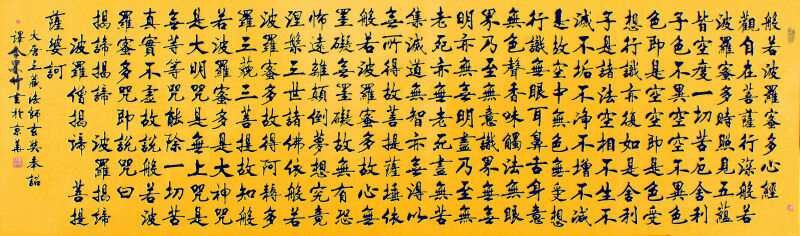 般若波羅蜜多心經
觀自在菩薩行深般若
波羅蜜多時照見五蘊
皆空度一切苦厄舍利
子色不異空空不異色
色即是空空即是色受
想行識亦復如是舍利
子是諸法空相不生不
滅不垢不淨不增不減
是故空中無色無受想
行識無眼耳鼻舌身意
無色聲香味觸法無眼
界乃至無意識界無無
明亦無無明盡乃至無
老死亦無老死盡無苦
集滅道無智亦無得以
無所得故菩提薩埵依
般若波羅蜜多故心無
罣礙無罣礙故無有恐
怖遠離顛倒夢想究竟
涅槃三世諸佛依般若
波羅蜜多故得阿耨多
羅三藐三菩提故知般
若波羅蜜多是大神咒
是大明咒是無上咒是
無等等咒能除一切苦
真實不虛故說般若波
羅蜜多咒即說咒曰
揭諦揭諦 波羅揭諦
波羅僧揭諦 菩提
薩婆訶
大唐三藏法師玄奘奉詔
譯 書於京華